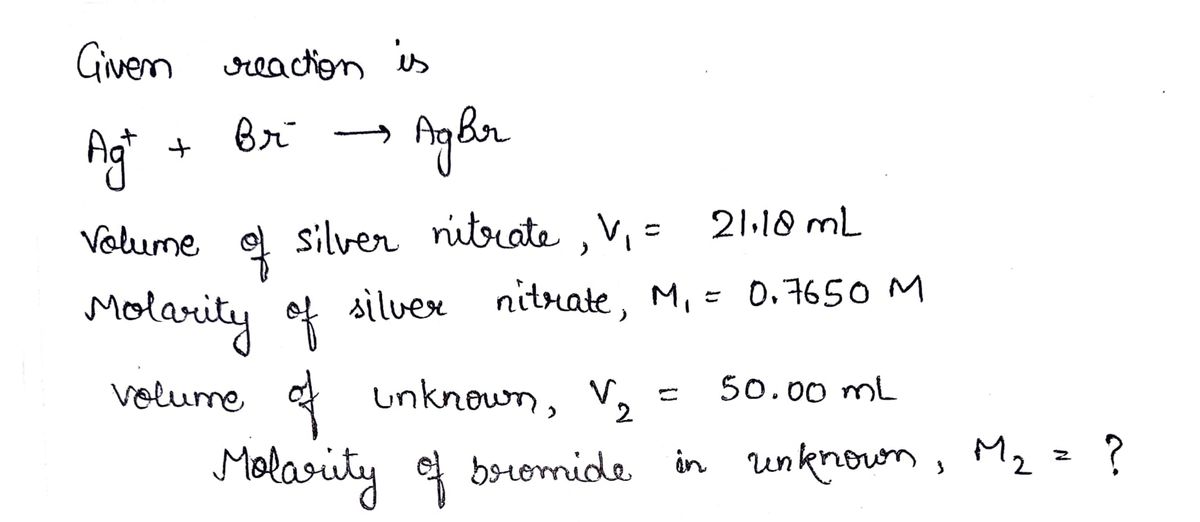 Given reaction is
Ag⁺ + Br⁻ → AgBr
Volume of silver nitrate, V₁ = 21.18 mL
Molarity of silver nitrate, M₁ = 0.7650 M
volume of unknown, V₂ = 50.00 mL
Molarity of bromide in unknown, M₂ = ?